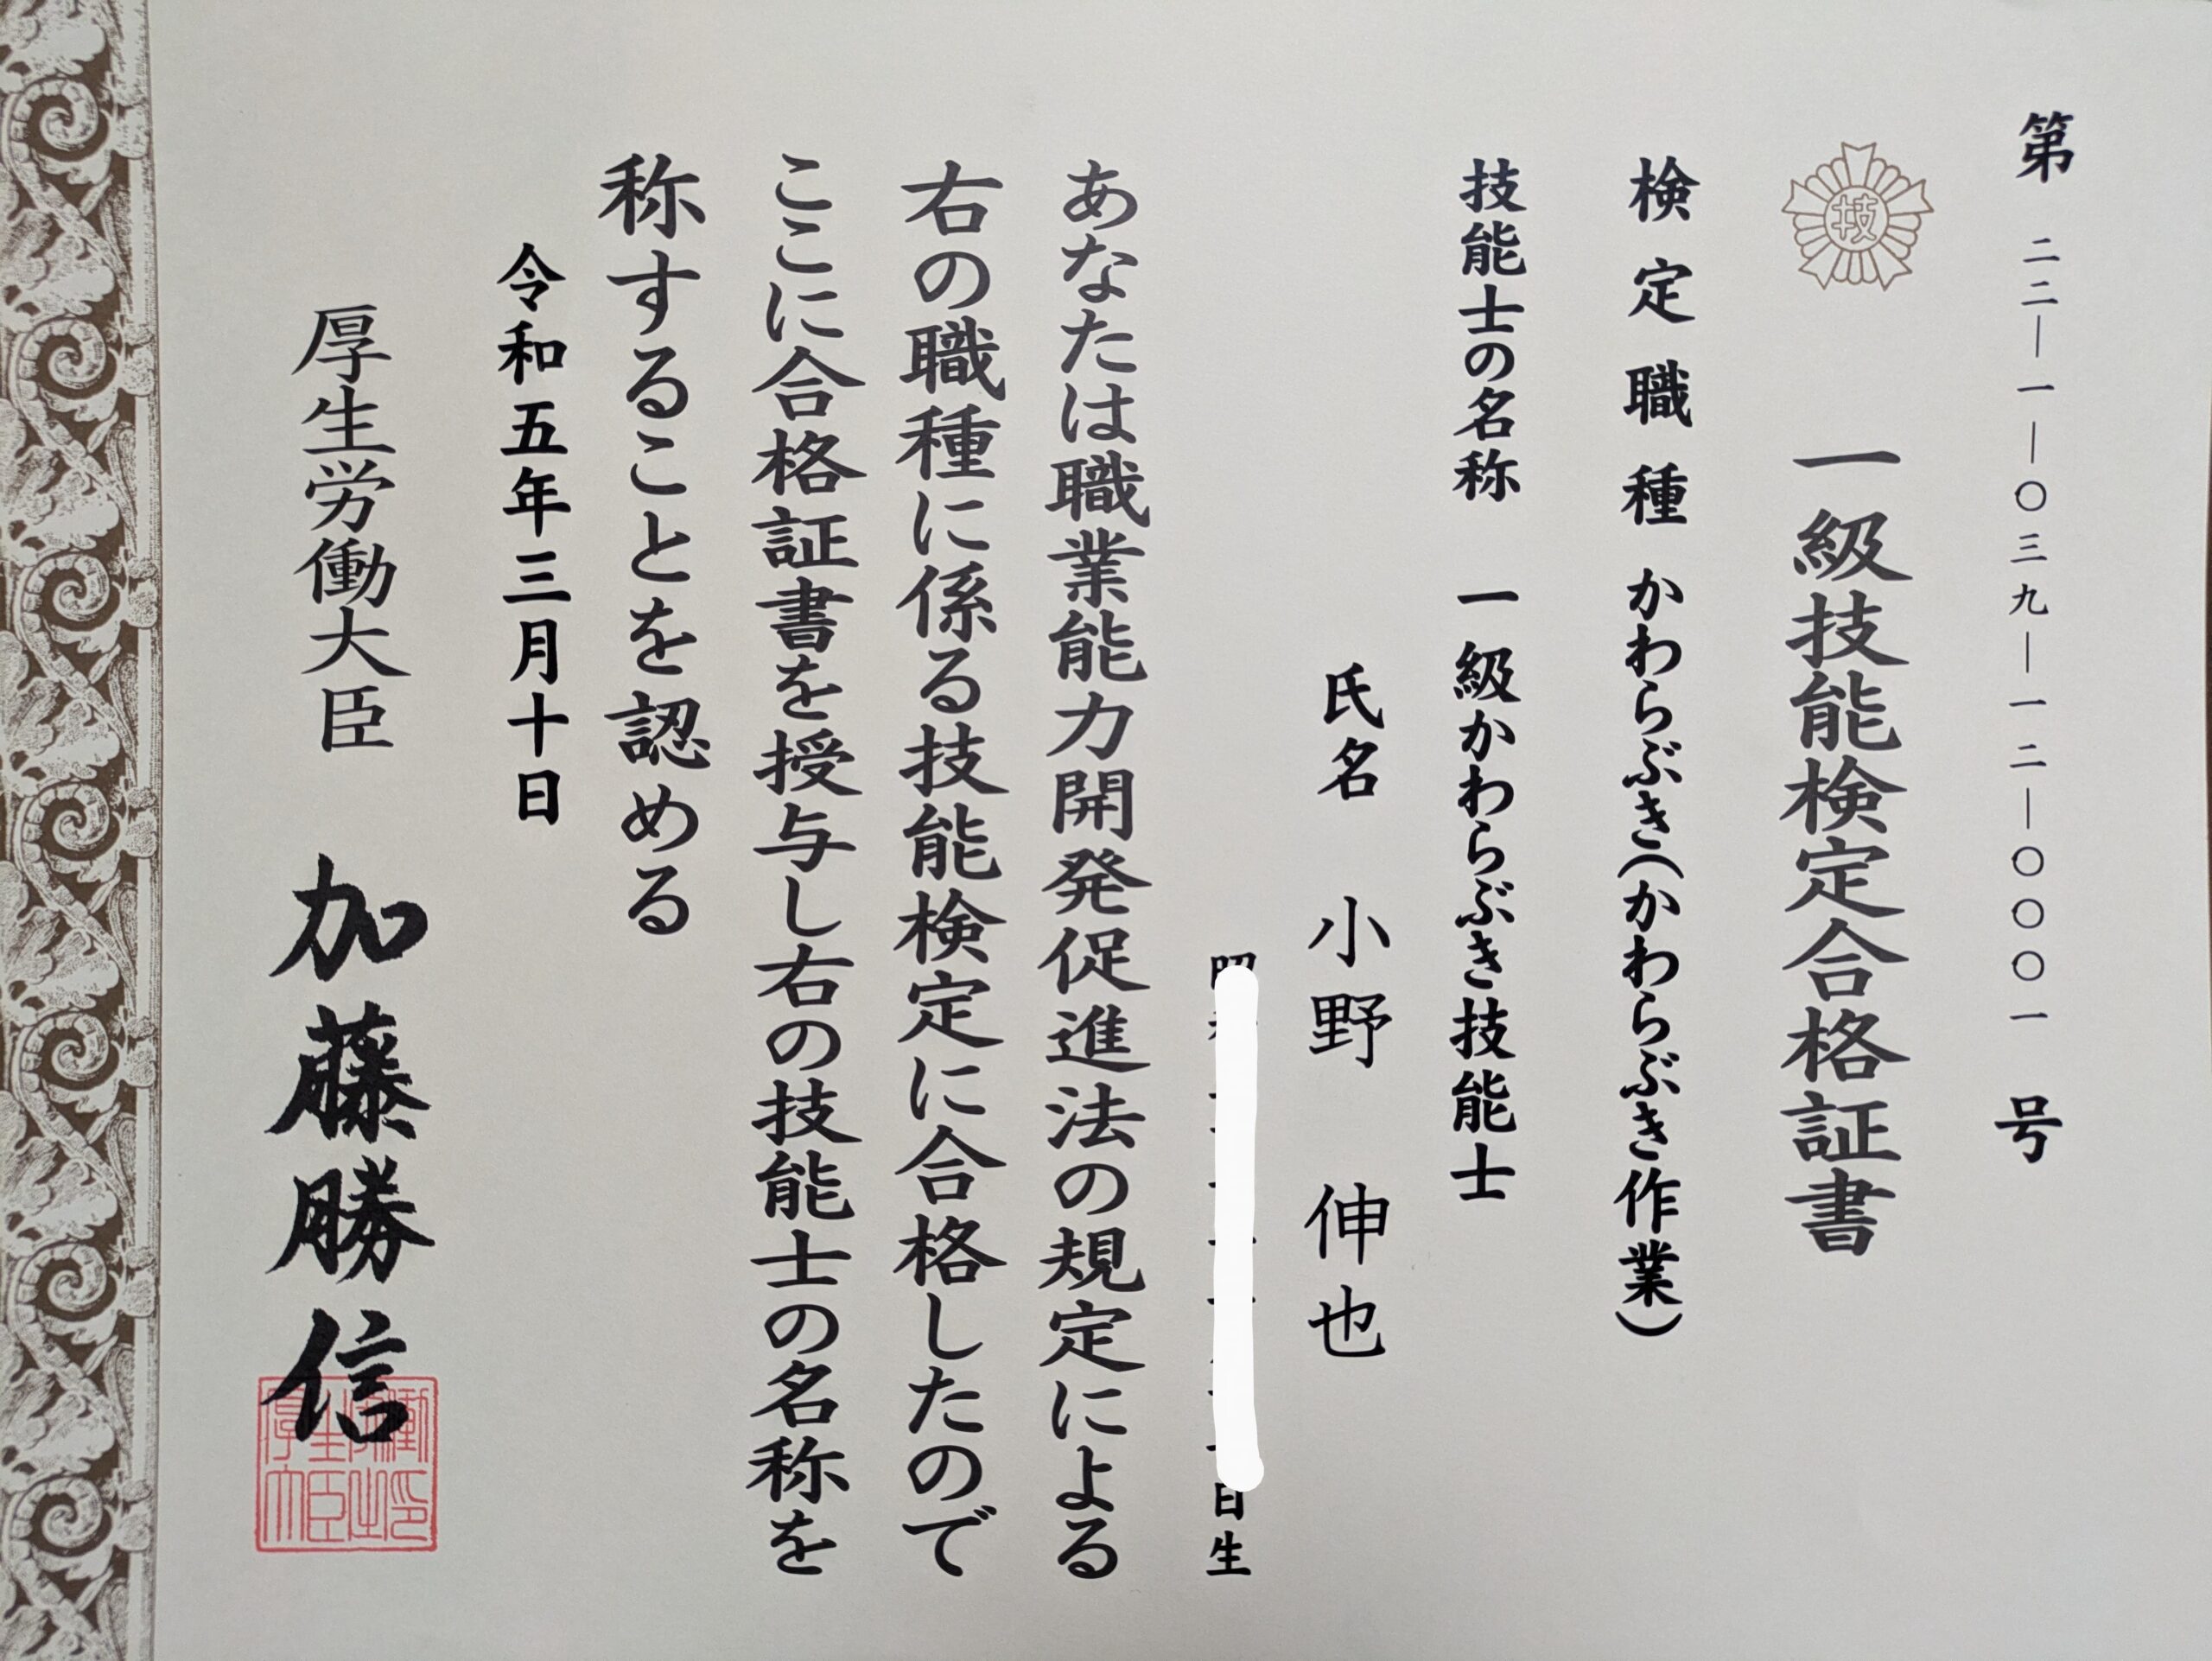 第 二二―一―〇三九―一二―〇〇〇一 号
技
一級技能検定合格証書
検定職種 かわらぶき(かわらぶき作業)
技能士の名称 一級かわらぶき技能士
氏名 小野 伸也
日生
あなたは職業能力開発促進法の規定による
右の職種に係る技能検定に合格したので
ここに合格証書を授与し右の技能士の名称を
称することを認める
令和五年三月十日
厚生労働大臣 加藤勝信
厚生労働大臣之印